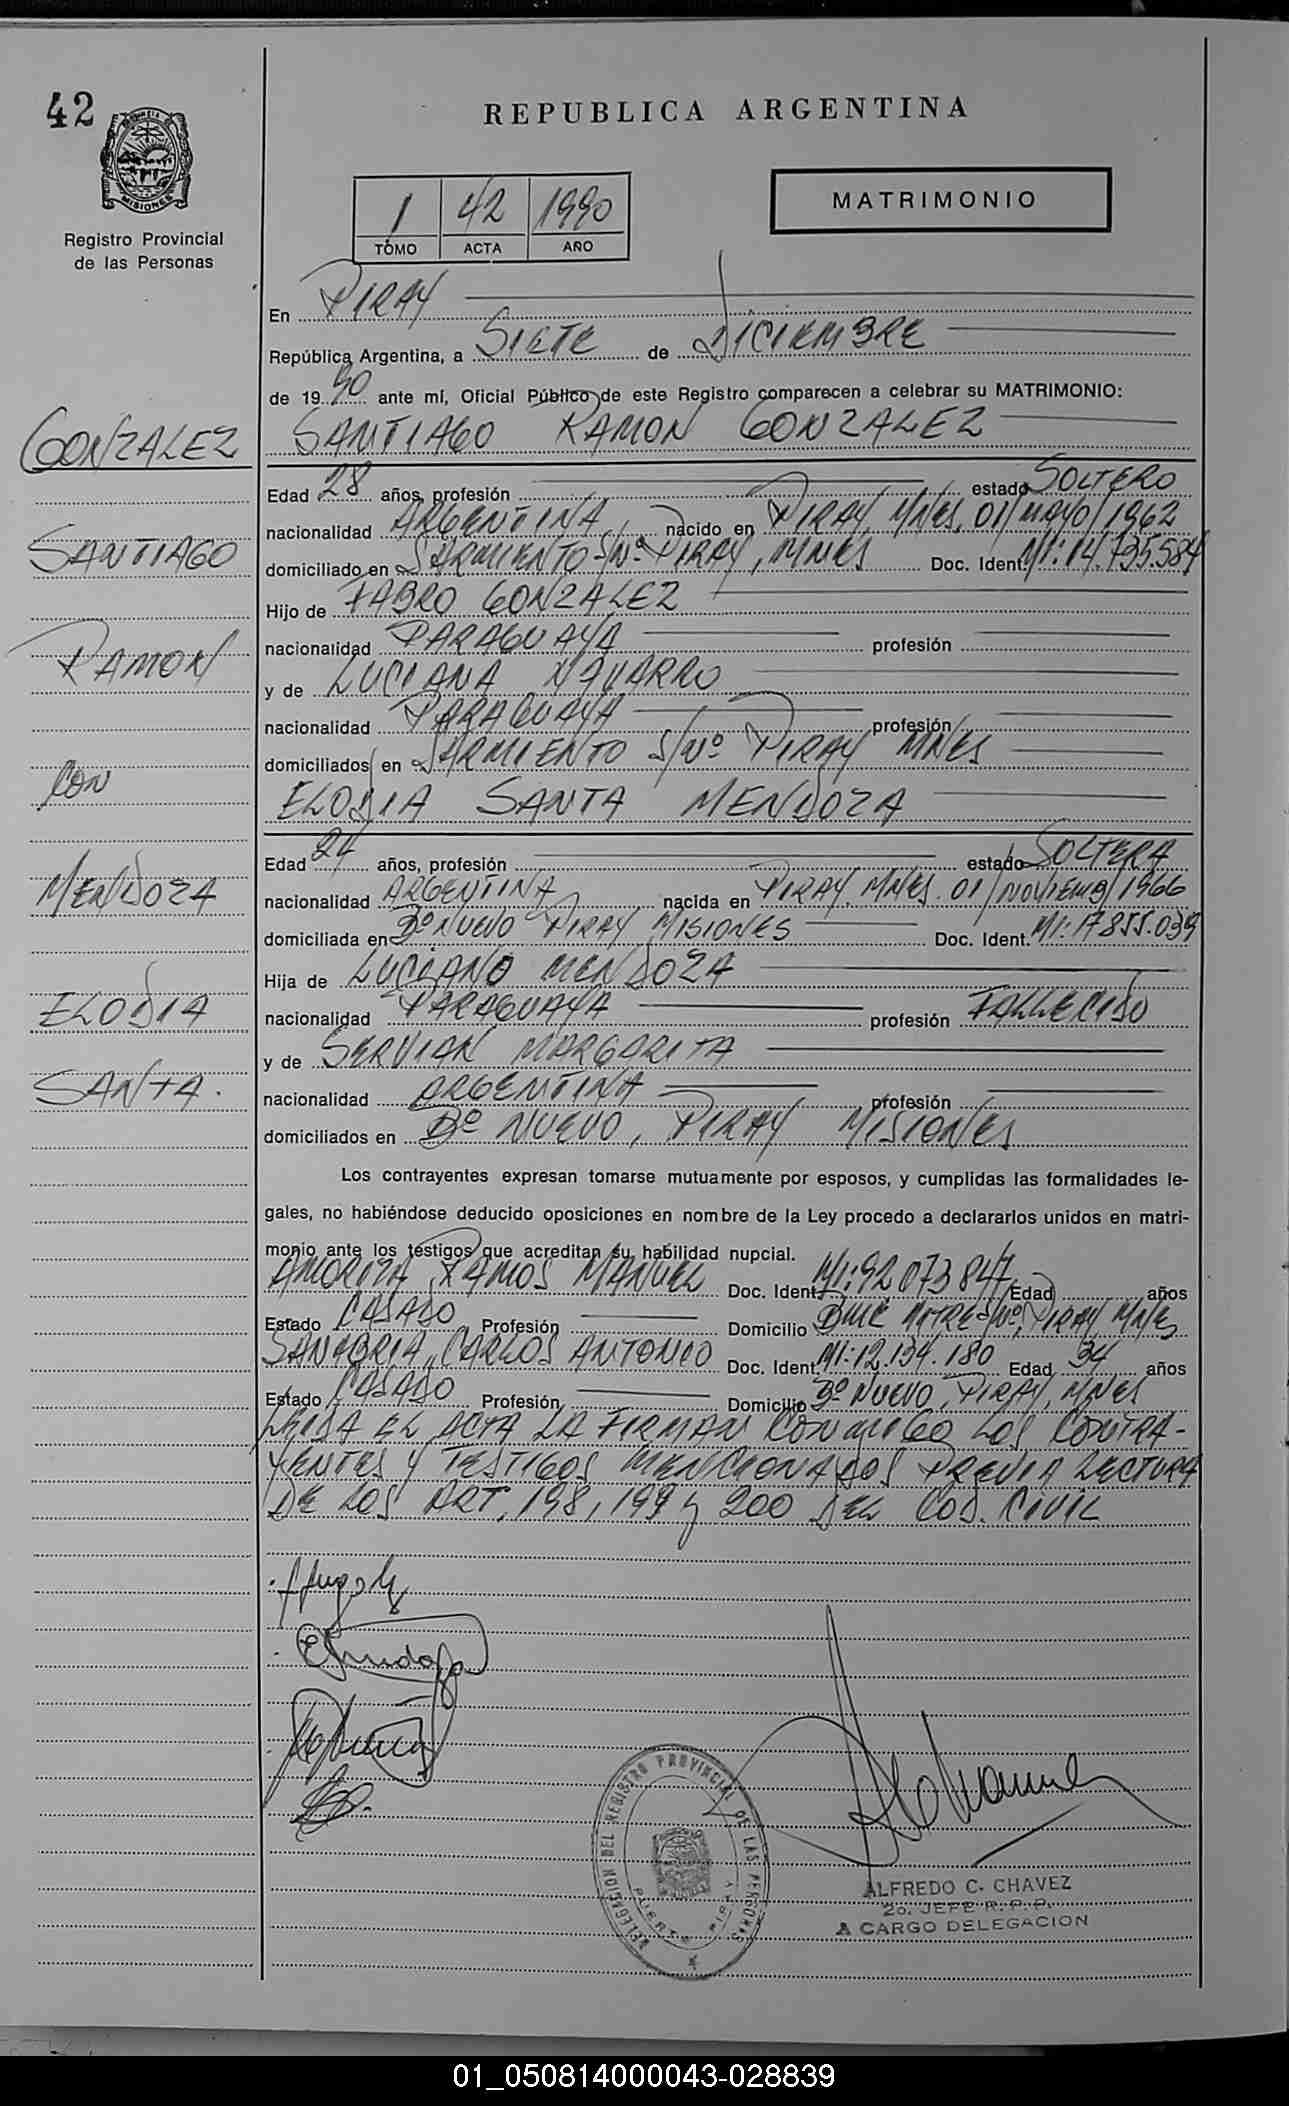 42
REPUBLICA ARGENTINA
MISIONES
Registro Provincial
de las Personas
1 42 1990
TOMO ACTA AÑO
MATRIMONIO
En PIRAY
República Argentina, a SIETE de DICIEMBRE
de 1990 ante mí, Oficial Público de este Registro comparecen a celebrar su MATRIMONIO:
SANTIAGO RAMON GONZALEZ
GONZALEZ
SANTIAGO
RAMON
CON
MENDOZA
ELODIA
SANTA.
Edad 28 años, profesión estado SOLTERO
nacionalidad ARGENTINA, nacido en PIRAY, MNES, 01/MAYO/1962
domiciliado en SARMIENTO S/Nº PIRAY, MNES Doc. Ident. MI: 14.735.584
Hijo de FABRO GONZALEZ
nacionalidad PARAGUAYA profesión
y de LUCIANA NAVARRO
nacionalidad PARAGUAYA profesión
domiciliados en SARMIENTO S/Nº PIRAY MNES
ELODIA SANTA MENDOZA
Edad 24 años, profesión estado SOLTERA
nacionalidad ARGENTINA nacida en PIRAY, MNES. 01/NOVIEMB/1966
domiciliada en Bº NUEVO PIRAY MISIONES Doc. Ident. MI: 17855.039
Hija de LUCIANO MENDOZA
nacionalidad PARAGUAYA profesión FALLECIDO
y de SERVIAN MARGARITA
nacionalidad ARGENTINA profesión
domiciliados en Bº NUEVO, PIRAY MISIONES
Los contrayentes expresan tomarse mutuamente por esposos, y cumplidas las formalidades le-
gales, no habiéndose deducido oposiciones en nombre de la Ley procedo a declararlos unidos en matri-
monio ante los testigos que acreditan su habilidad nupcial.
RAMOS MANUEL Doc. Ident. MI: 92 073 847 Edad años
Estado CASADO Profesión Domicilio MITRE S/Nº, PIRAY MNES
SANABRIA, CARLOS ANTONIO Doc. Ident. MI: 12.134.180 Edad 34 años
Estado CASADO Profesión Domicilio Bº NUEVO, PIRAY, MNES
LEIDA EL ACTA LA FIRMAN CONMIGO LOS CONTRA-
YENTES Y TESTIGOS MENCIONADOS PREVIA LECTURA
DE LOS ART, 198, 199 y 200 DEL COD. CIVIL
DELEGACION DEL REGISTRO PROVINCIAL DE LAS PERSONAS
PUERTO PIRAY
ALFREDO C. CHAVEZ
2o. JEFE R. P. P.
A CARGO DELEGACION
01_050814000043-028839